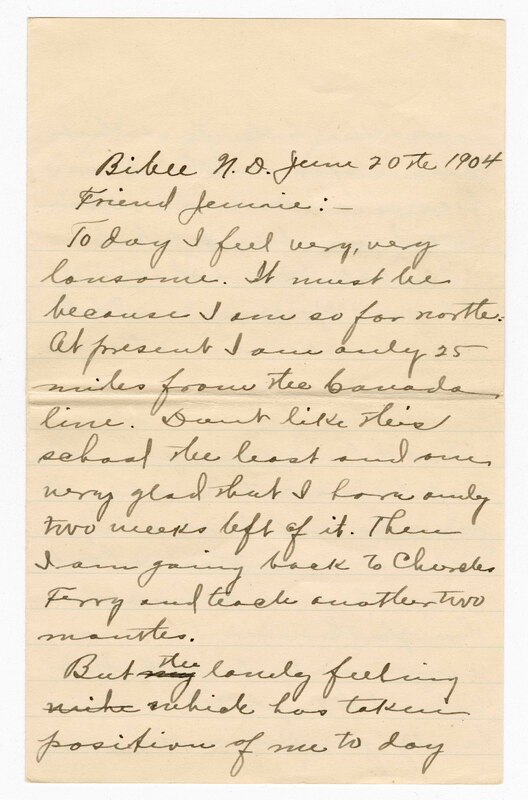 Bisbee N. D. June 20th 1904
Friend Jennie:-
To day I feel very, very
lonsome. It must be
because I am so far north.
At present I am only 25
miles from the Canada
line. Don't like this
school the least and am
very glad that I have only
two weeks left of it. Then
I am going back to Churchs
Ferry and teach another two
months.
But my the lonely feeling
which has taken
position of me to day